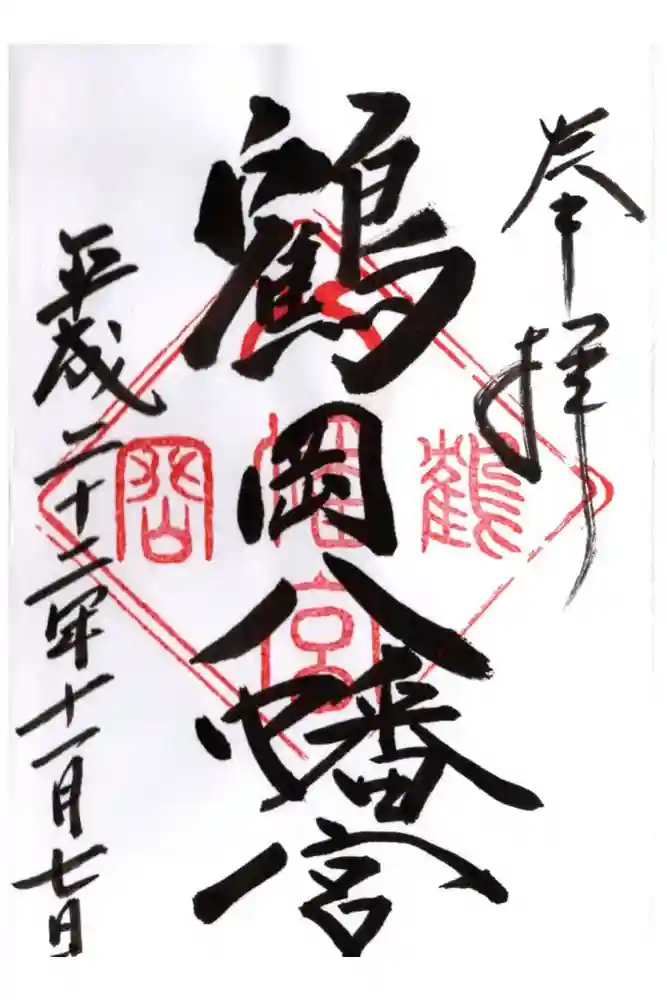 奉拝
鶴岡八幡宮
平成二十二年十一月七日